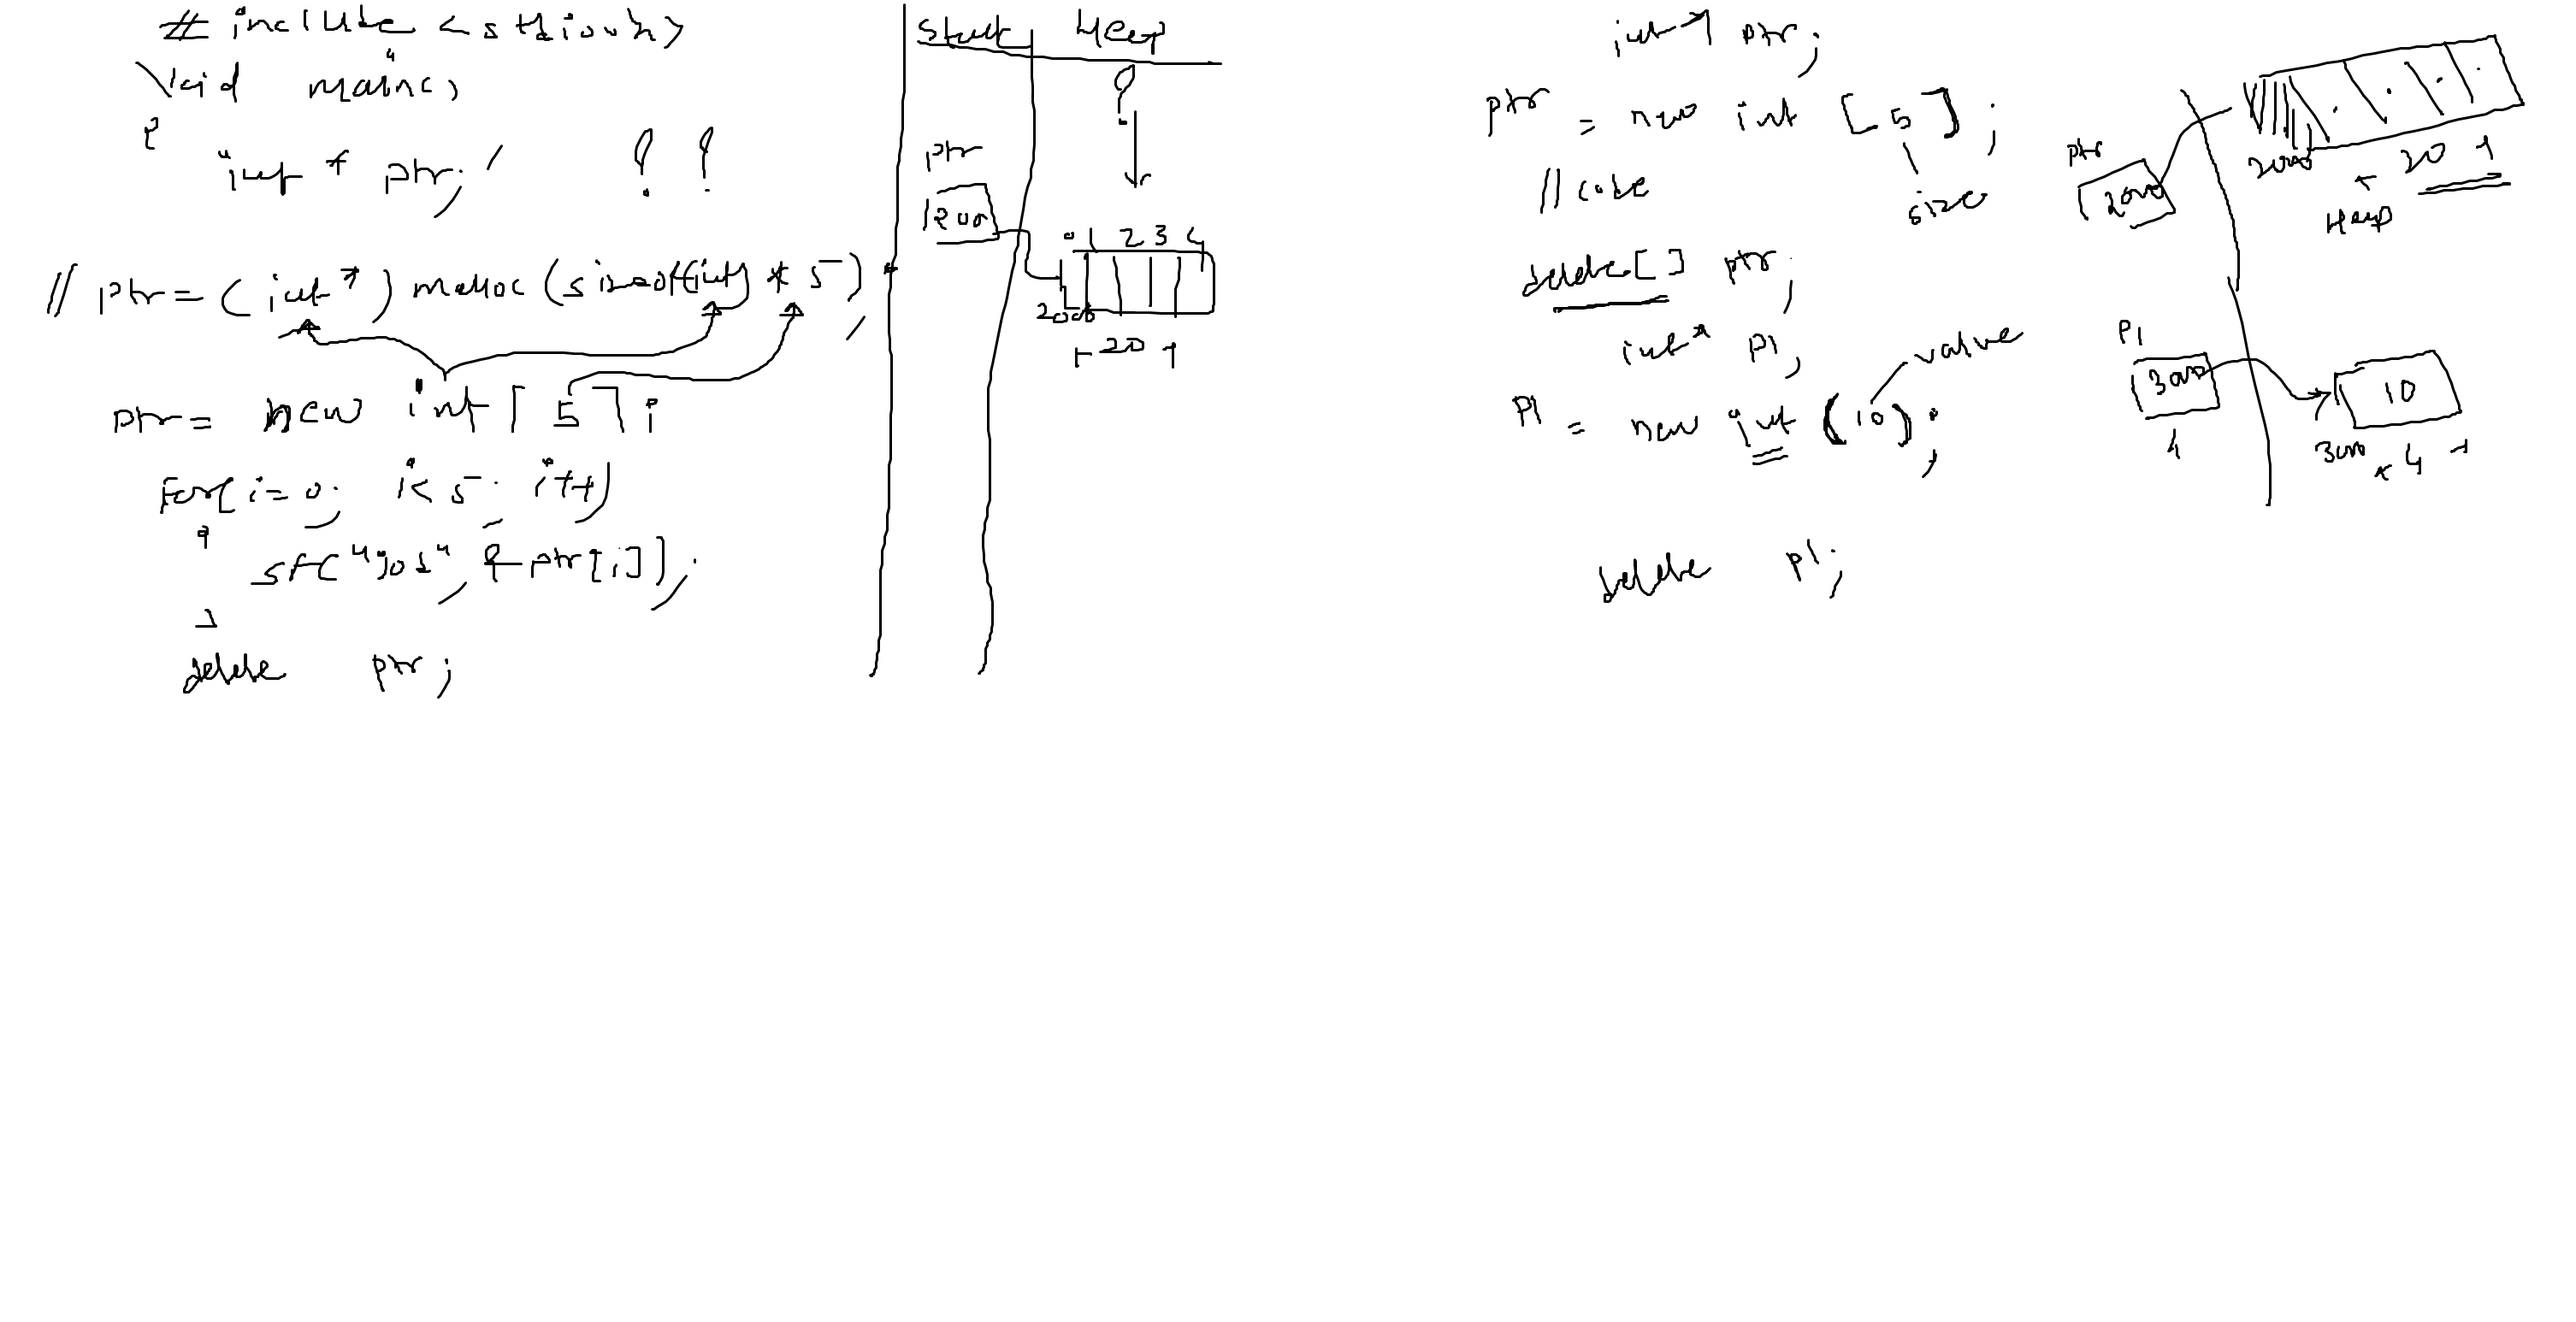 # include <stdio.h>
void main()
{
int * ptr;
// ptr = (int *) malloc (sizeof(int) * 5);
ptr = new int [ 5 ];
for(i=0; i<5; i++)
{
sf("%d", &ptr[i]);
}
delete ptr;
stack Heap
?
ptr
200
0 1 2 3 4
2000
20
int * ptr;
ptr = new int [ 5 ];
size
// code
delete[] ptr;
int * p1;
value
p1 = new int (10);
delete p1;
ptr
2000
2000
20
Heap
P1
3000
4
10
3000
4